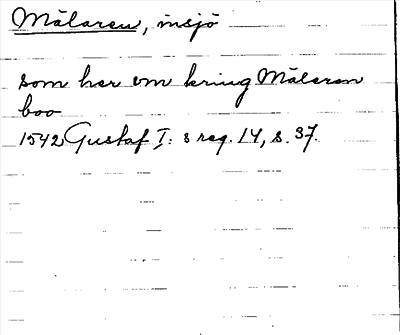 Mälaren, insjö
som her om kring Mälaren
boo
1542 Gustaf I:s reg. 14, s. 37.